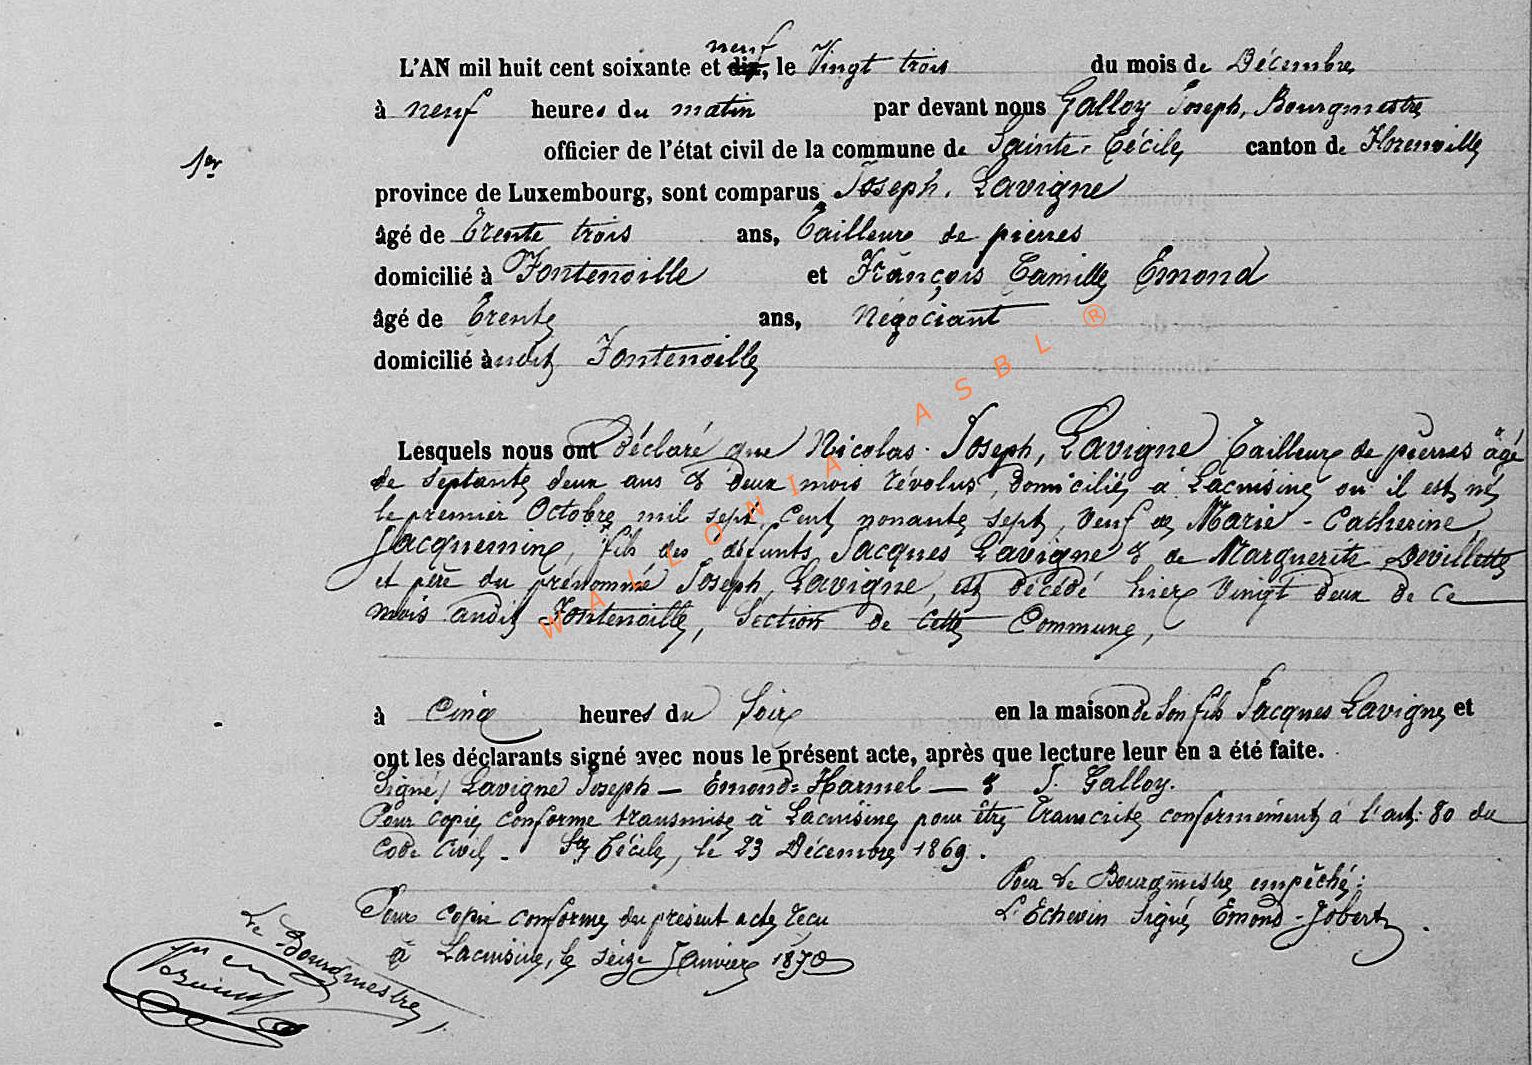 neuf
L'AN mil huit cent soixante et dix, le Vingt trois du mois de Décembre
à neuf heures du matin par devant nous Galloy Joseph, Bourgmestre
1er
officier de l'état civil de la commune de Sainte-Cécile canton de Florenville
province de Luxembourg, sont comparus Joseph Lavigne
âgé de Trente trois ans, Tailleur de pierres
domicilié à Fontenoille et François Camille Emond
âgé de Trente ans, Négociant
domicilié à Fontenoille
Lesquels nous ont déclaré que Nicolas-Joseph, Lavigne Tailleur de pierres âgé
de septante deux ans & deux mois révolus, domicilié à Lacuisine où il est né
le premier Octobre mil sept cent nonante sept, veuf de Marie-Catherine
Jacquemin, fils des défunts Jacques Lavigne & de Marguerite Devillette
et père du prénommé Joseph Lavigne, est décédé hier vingt deux de ce
mois audit Fontenoille, Section de cette Commune,
à Cinq heures du Soir en la maison de son fils Jacques Lavigne et
ont les déclarants signé avec nous le présent acte, après que lecture leur en a été faite.
Signé) Lavigne Joseph — Emond-Harmel — & J. Galloy.
Pour copie conforme transmise à Lacuisine pour être transcrite conformément à l'art: 80 du
Code Civil - Ste Cécile, le 23 Décembre 1869.
Pour le Bourgmestre empêché:
L'Echevin Signé Emond-Jobert.
Pour copie conforme du présent acte reçu
à Lacuisine, le seize Janvier 1870
Le Bourgmestre,
WALLONIA ASBL ®